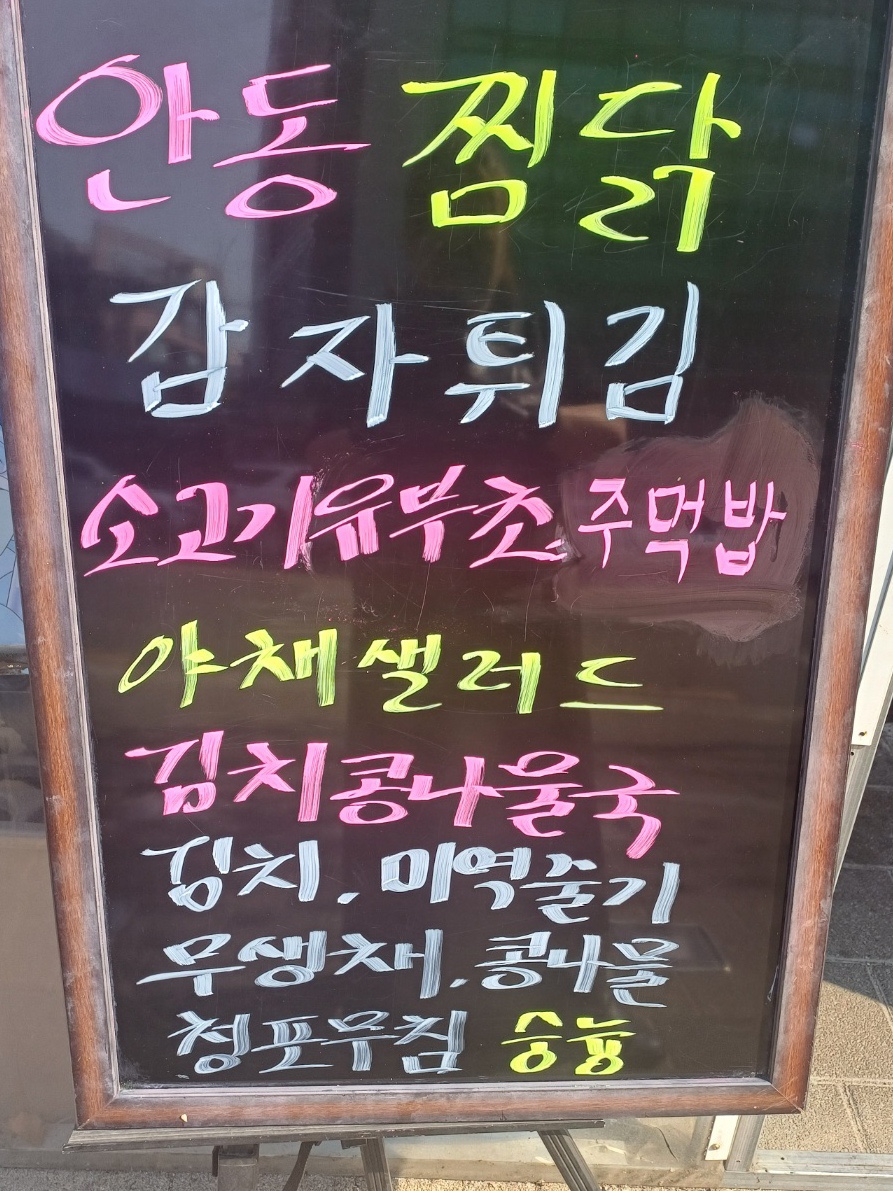 안동 찜닭
감자튀김
소고기유부초.주먹밥
야채샐러드
김치콩나물국
김치. 미역줄기
무생채.콩나물
청포무침 숭늉